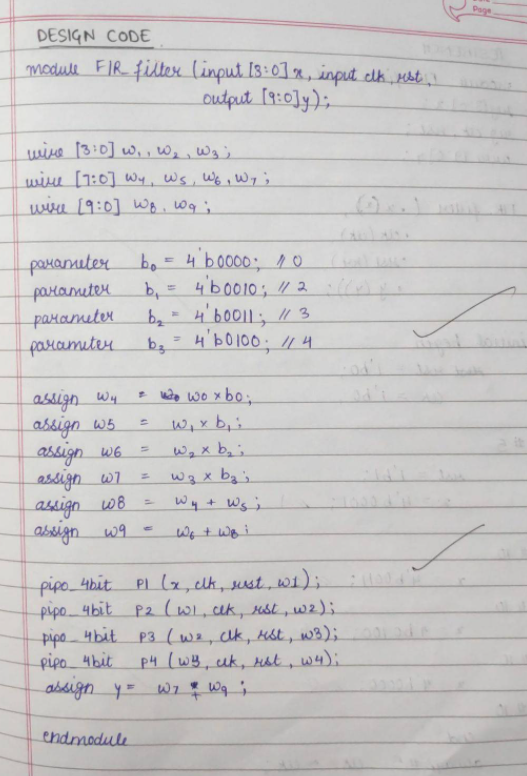 Page
DESIGN CODE
module FIR_filter (input [3:0] x, input clk, rst,
output [9:0] y);
wire [3:0] w₁, w₂, w₃;
wire [7:0] w₄, w₅, w₆, w₇;
wire [9:0] w₈, w₉;
parameter b₀ = 4'b0000; // 0
parameter b₁ = 4'b0010; // 2
parameter b₂ = 4'b0011; // 3
parameter b₃ = 4'b0100; // 4
assign w4 = w0 × b0;
assign w5 = w₁ × b₁;
assign w6 = w₂ × b₂;
assign w7 = w₃ × b₃;
assign w8 = w₄ + w₅;
assign w9 = w₆ + w₈;
pipo_4bit P1 (x, clk, rst, w1);
pipo_4bit P2 (w1, clk, rst, w2);
pipo_4bit P3 (w2, clk, rst, w3);
pipo_4bit P4 (w3, clk, rst, w4);
assign y = w₇ + w₉;
endmodule